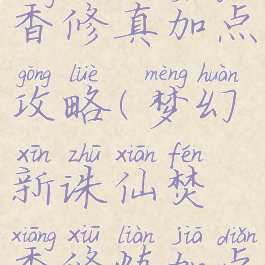 香修真加点
gōng lüè mèng huàn
攻略(梦幻
xīn zhū xiān fén
新诛仙焚
xiāng xiū liàn jiā diǎn